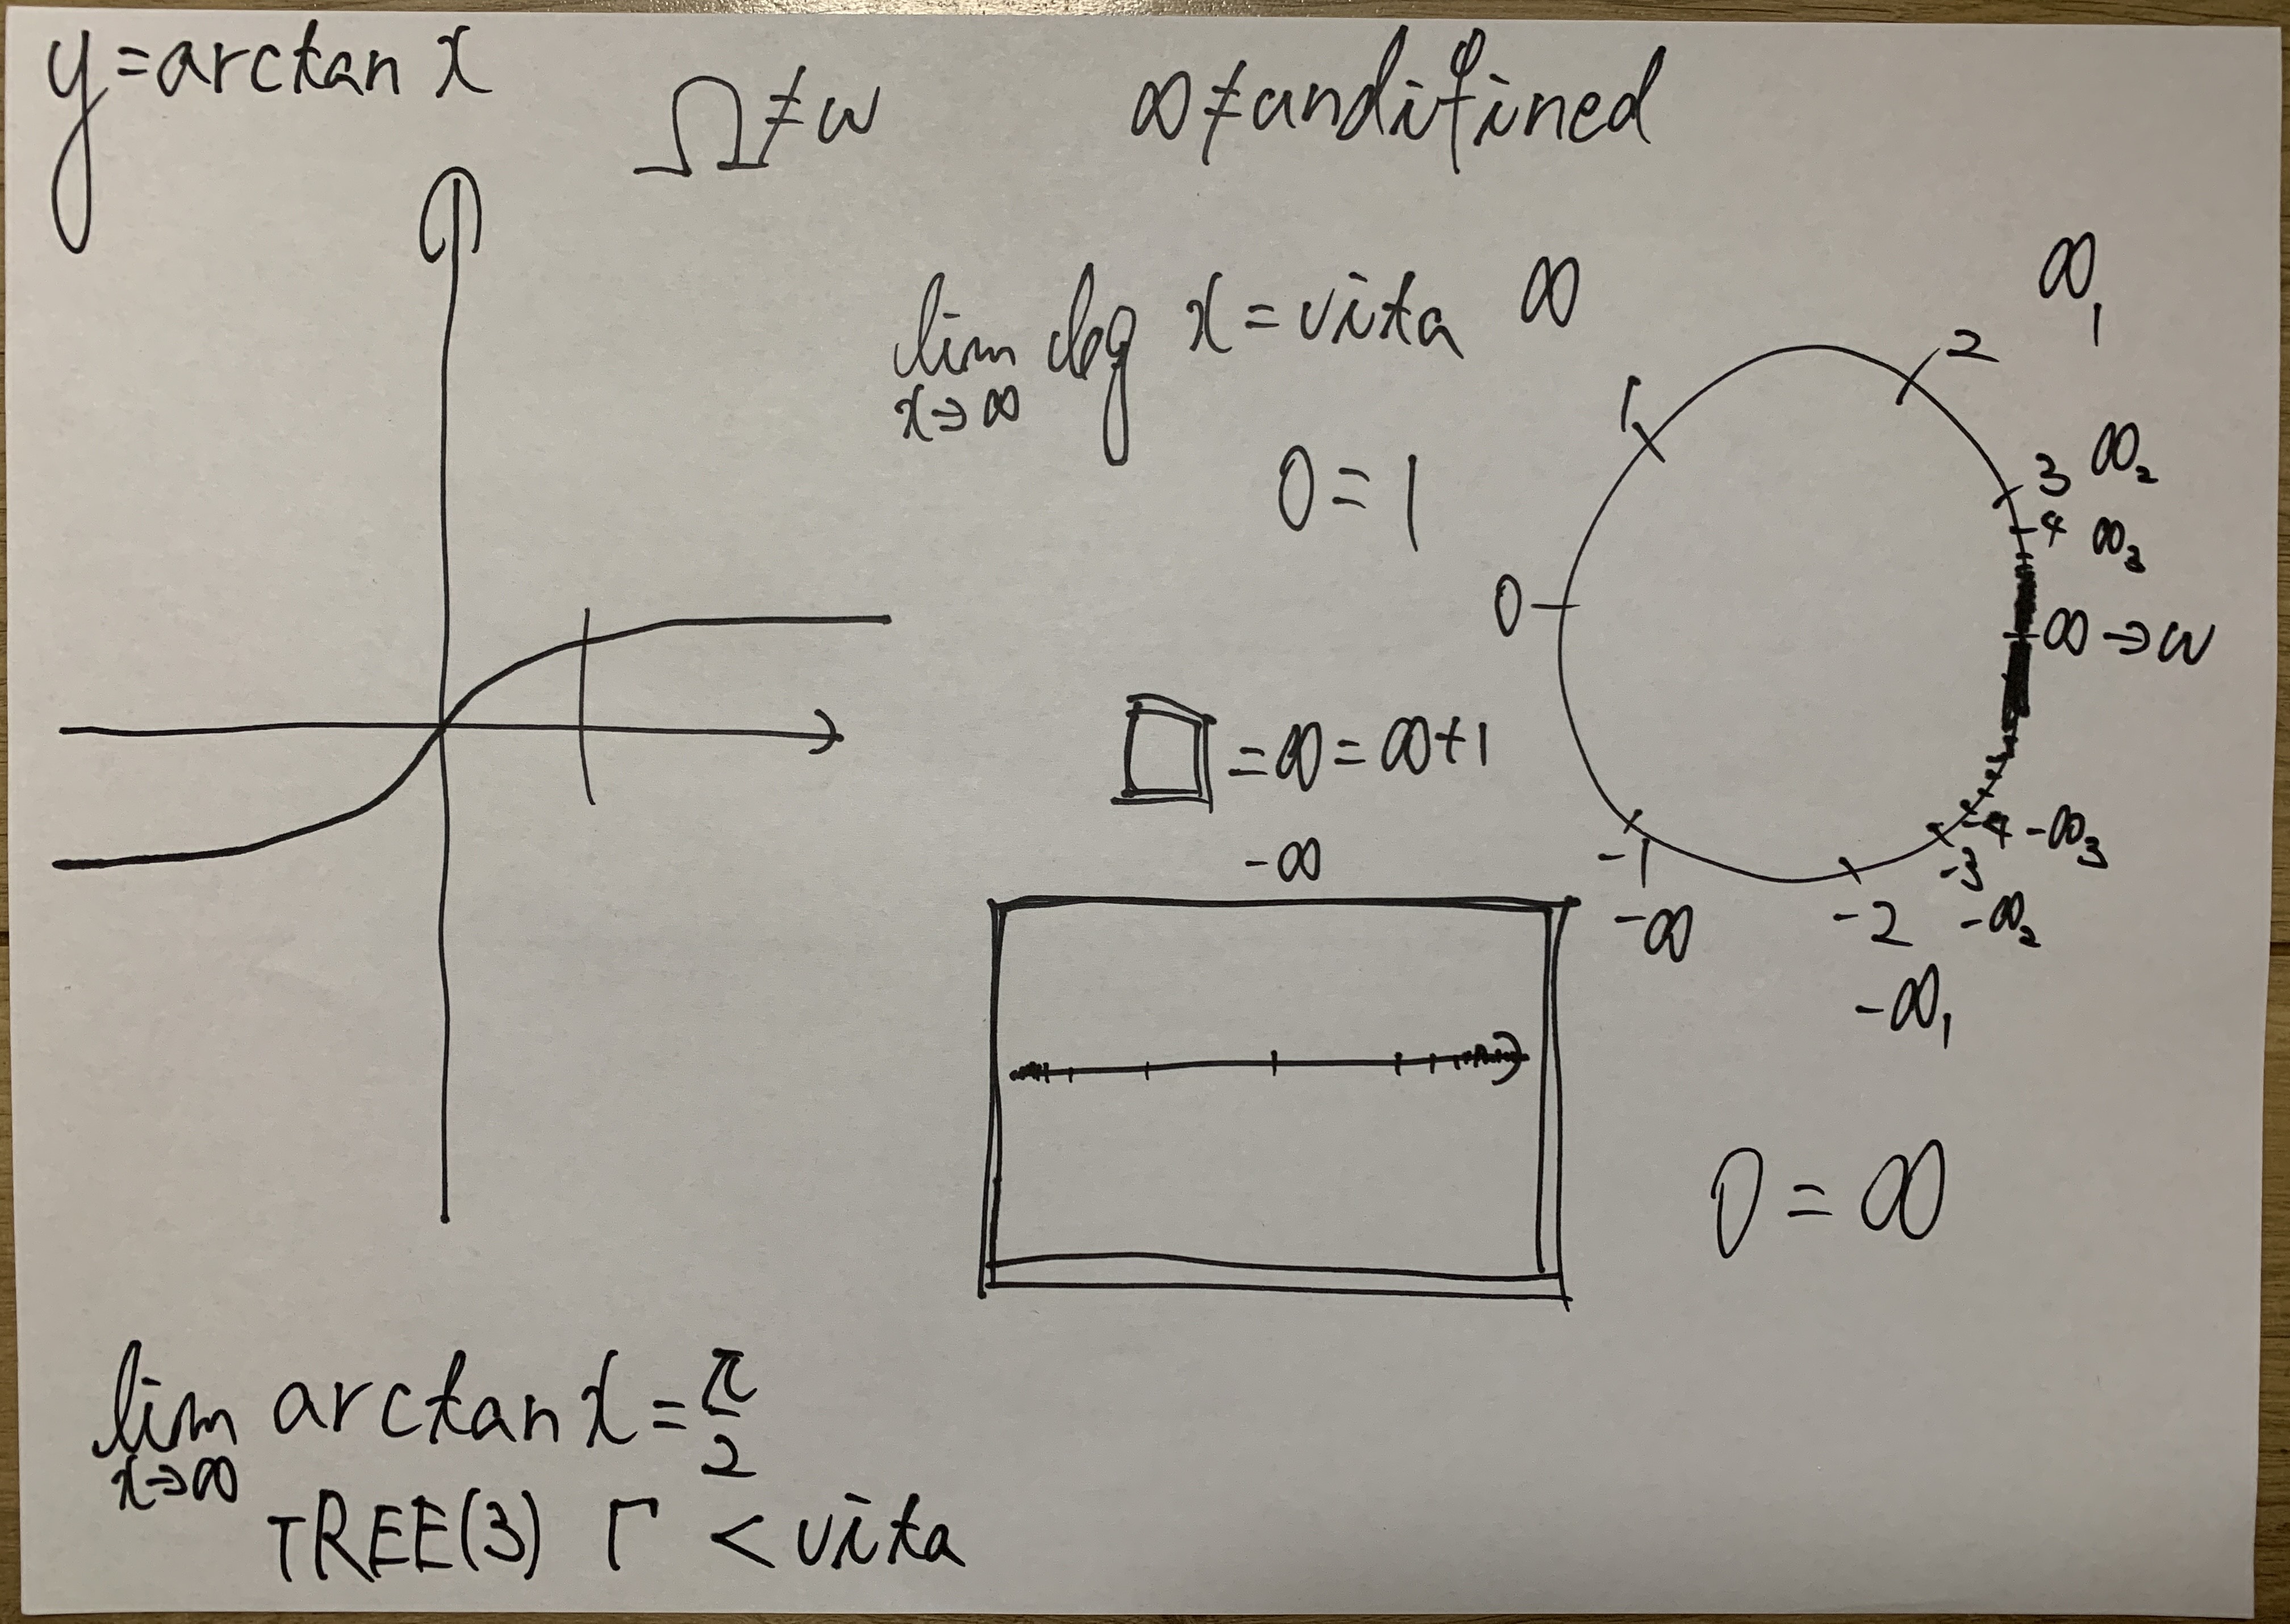 y=arctan x
Ω≠ω
∞≠undifined
lim log x=vita ∞
x→∞
0=1
∞₁
2
1
3 ∞₂
4 ∞₃
0
∞→ω
□=∞=∞+1
-∞
-1
-∞
-2
-∞₁
-3
-∞₂
-4 -∞₃
0=∞
lim arctan x=π/2
x→∞
TREE(3) Γ <vita